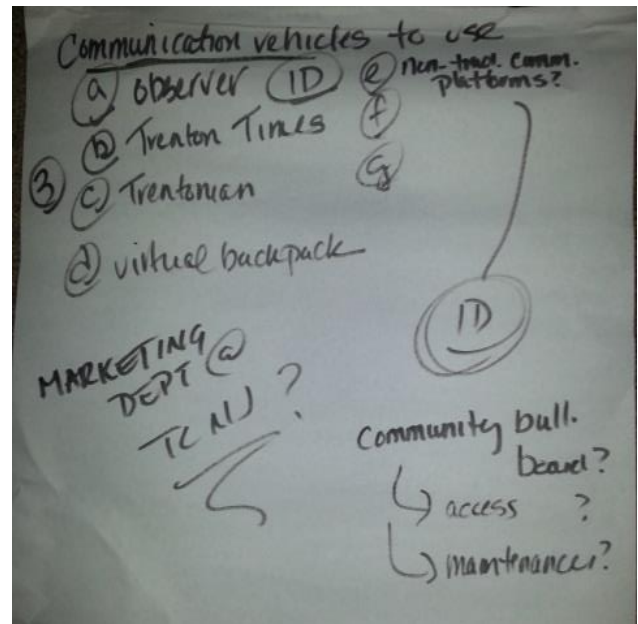 Communication vehicles to use
(a) observer (ID)
(b) Trenton Times
(3) (c) Trentonian
(d) virtual backpack
(e) non-trad. comm.
platforms?
(f)
(g)
ID
MARKETING
DEPT @
TCNJ ?
Community bull.
board?
↳ access ?
↳ maintenance?